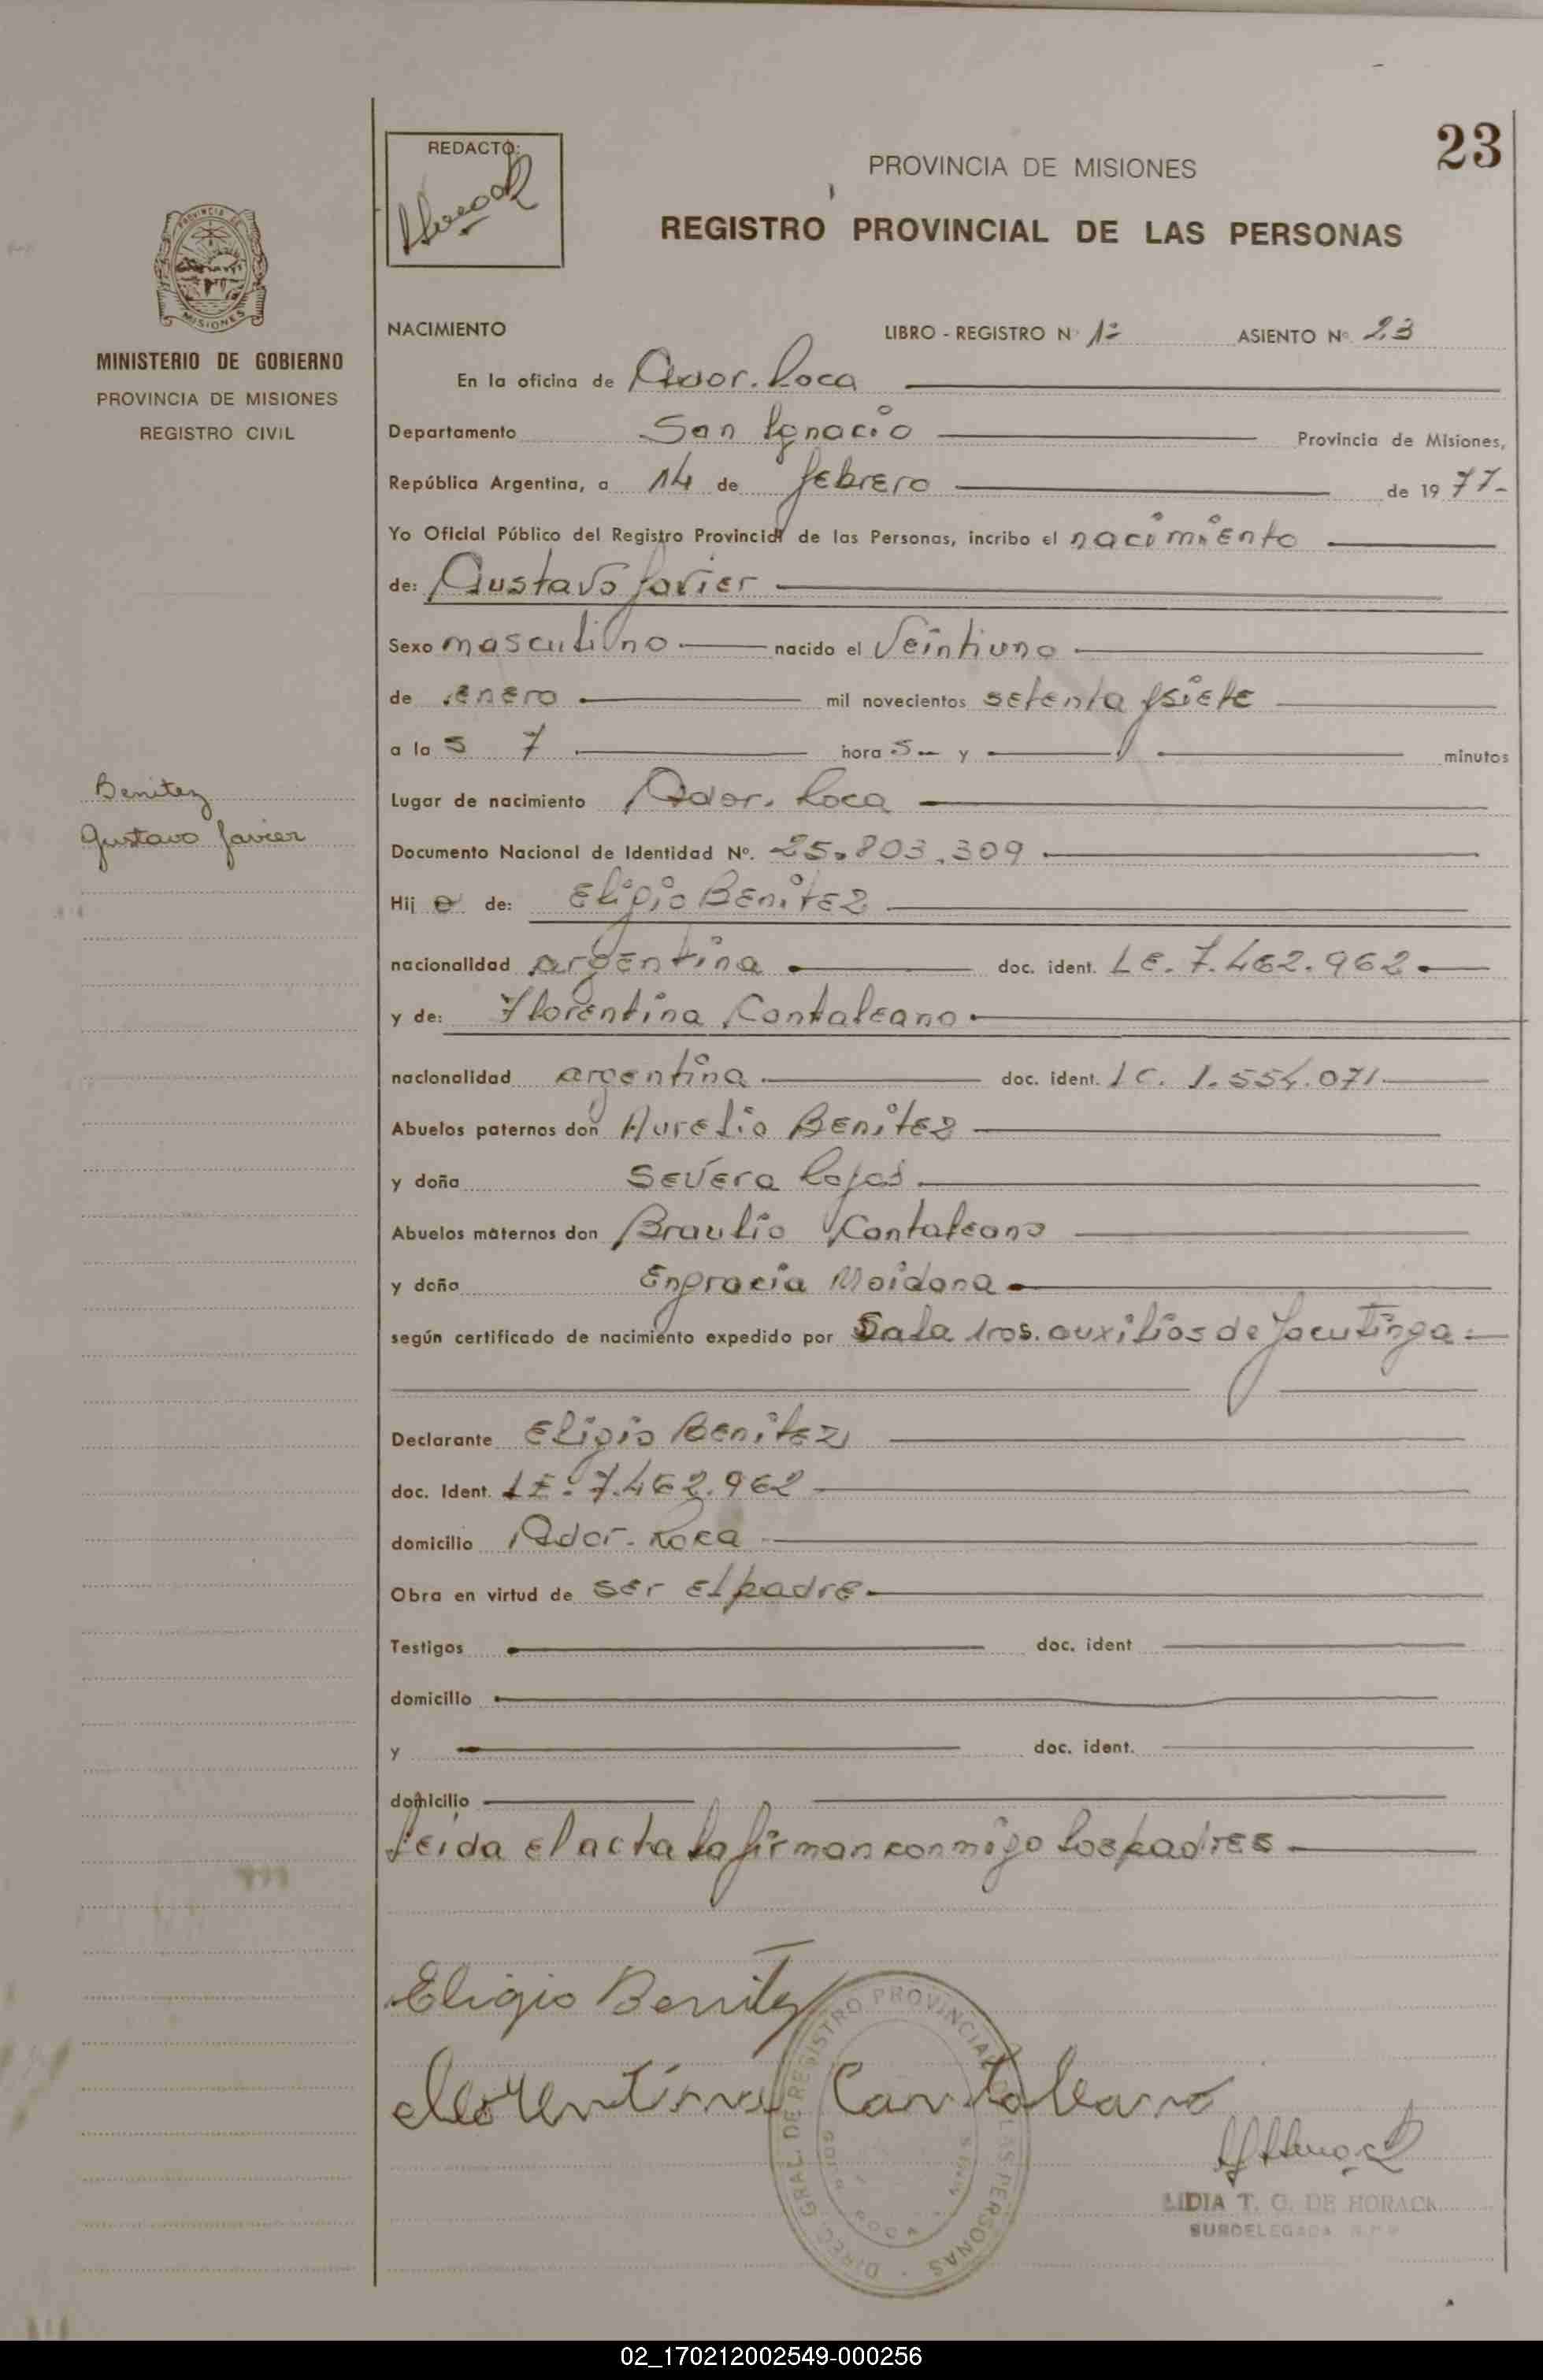 23
REDACTÓ:
PROVINCIA DE MISIONES
REGISTRO PROVINCIAL DE LAS PERSONAS
PROVINCIA DE
MISIONES
MINISTERIO DE GOBIERNO
PROVINCIA DE MISIONES
REGISTRO CIVIL
Benitez
Gustavo Javier
NACIMIENTO LIBRO - REGISTRO Nº 1º ASIENTO Nº 23
En la oficina de Gdor. Roca
Departamento San Ignacio Provincia de Misiones,
República Argentina, a 14 de febrero de 1977.-
Yo Oficial Público del Registro Provincial de las Personas, incribo el nacimiento
de: Gustavo Javier
Sexo masculino nacido el Veintiuno
de enero mil novecientos setenta y siete
a las 7 horas y minutos
Lugar de nacimiento Gdor. Roca
Documento Nacional de Identidad Nº. 25.803.309
Hijo de: Eligio Benitez
nacionalidad argentina doc. ident. LE. 7.462.962
y de: Florentina Cantaleano
nacionalidad argentina doc. ident. LC. 1.554.071
Abuelos paternos don Aurelio Benitez
y doña Severa Rojas
Abuelos maternos don Braulio Cantaleano
y doña Engracia Moidana
según certificado de nacimiento expedido por Sala 1ros. auxilios de Jacutinga
Declarante Eligio Benitez
doc. Ident. LE. 7.462.962
domicilio Gdor. Roca
Obra en virtud de ser el padre
Testigos doc. ident
domicilio
y doc. ident.
domicilio
Leida el acta la firman conmigo los padres
Eligio Benitez
Florentina Cantaleano
DIREC. GRAL. DE REGISTRO PROVINCIAL DE LAS PERSONAS
LIDIA T. G. DE HORACK
SUBDELEGADA R.P.P.
02_170212002549-000256